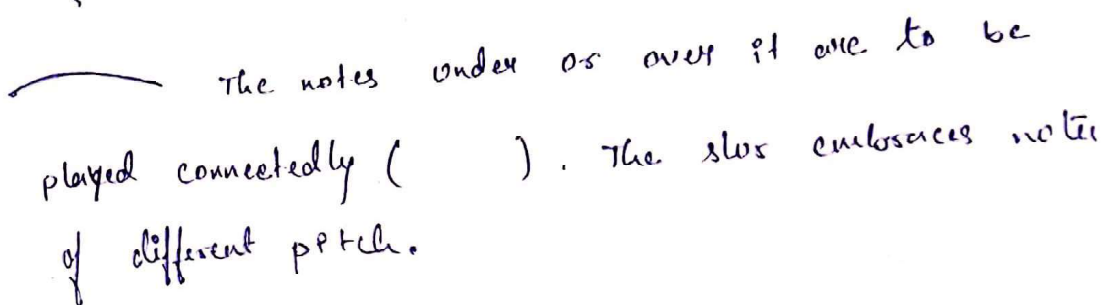 The notes under or over it are to be
played connectedly (      ). The slur embraces notes
of different pitch.